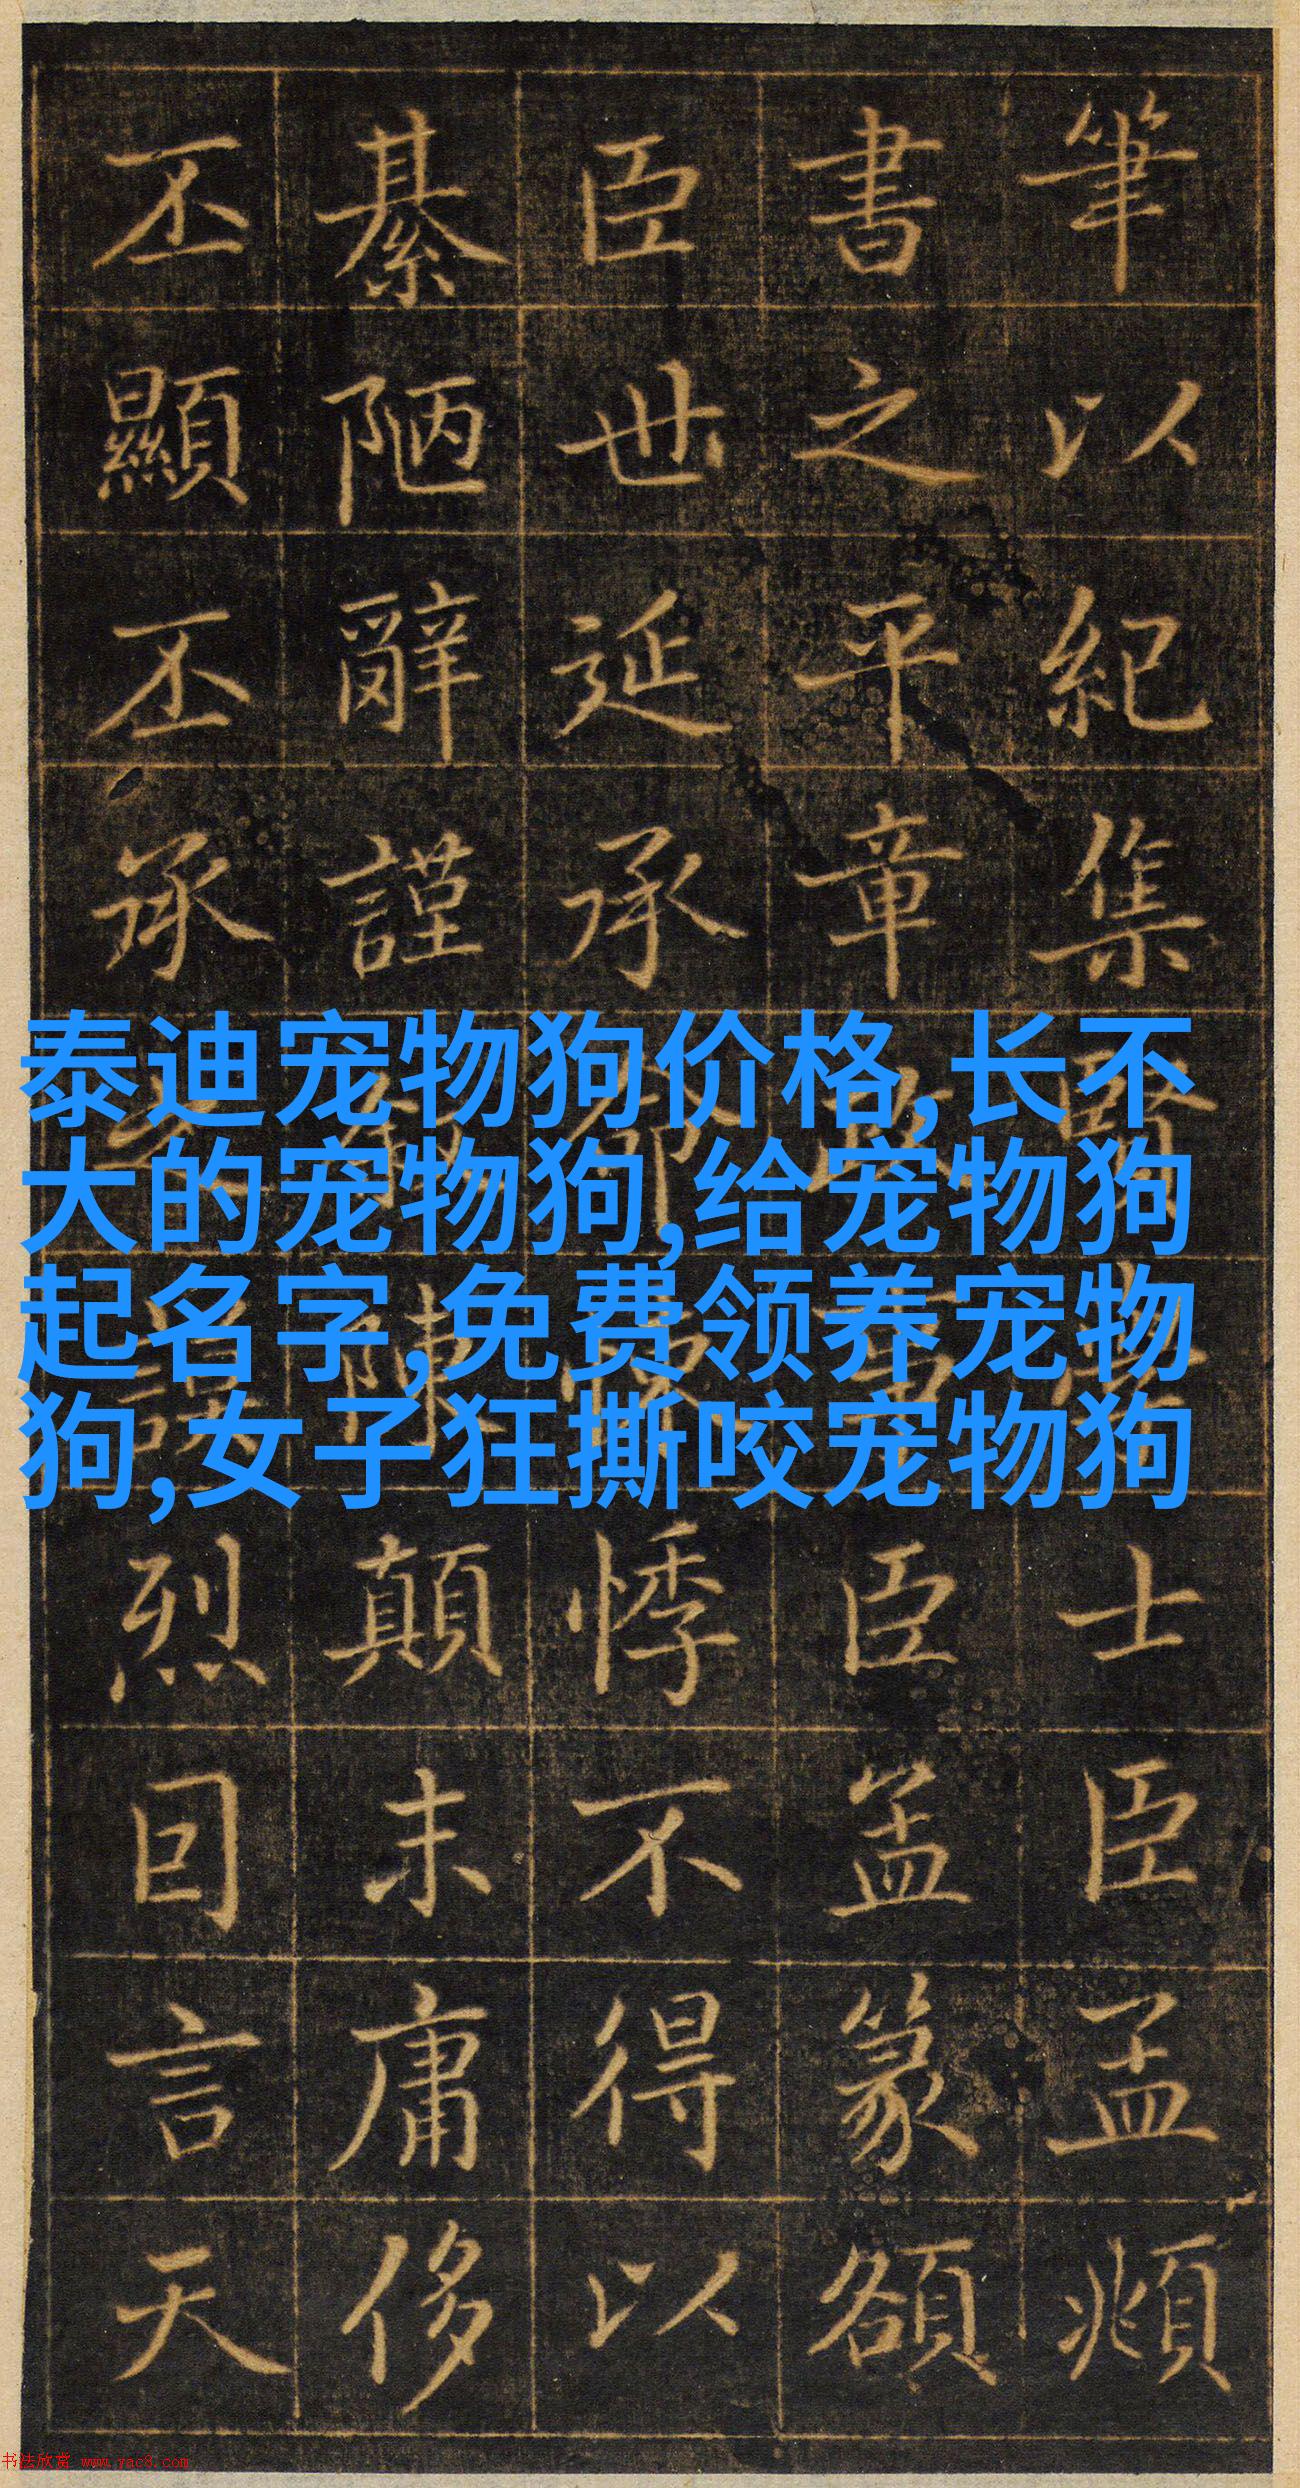 筆以紀集賢士臣孟頫
書之平章政事臣盖篆額
臣世延承悸不得以
綦陋辭謹陳顛末庸侈
丕顯丕承之謨烈囙言天
泰迪宠物狗价格,长不
大的宠物狗,给宠物狗
起名字,免费领养宠物
狗,女子狂撕咬宠物狗
书法欣赏 www.yac8.com